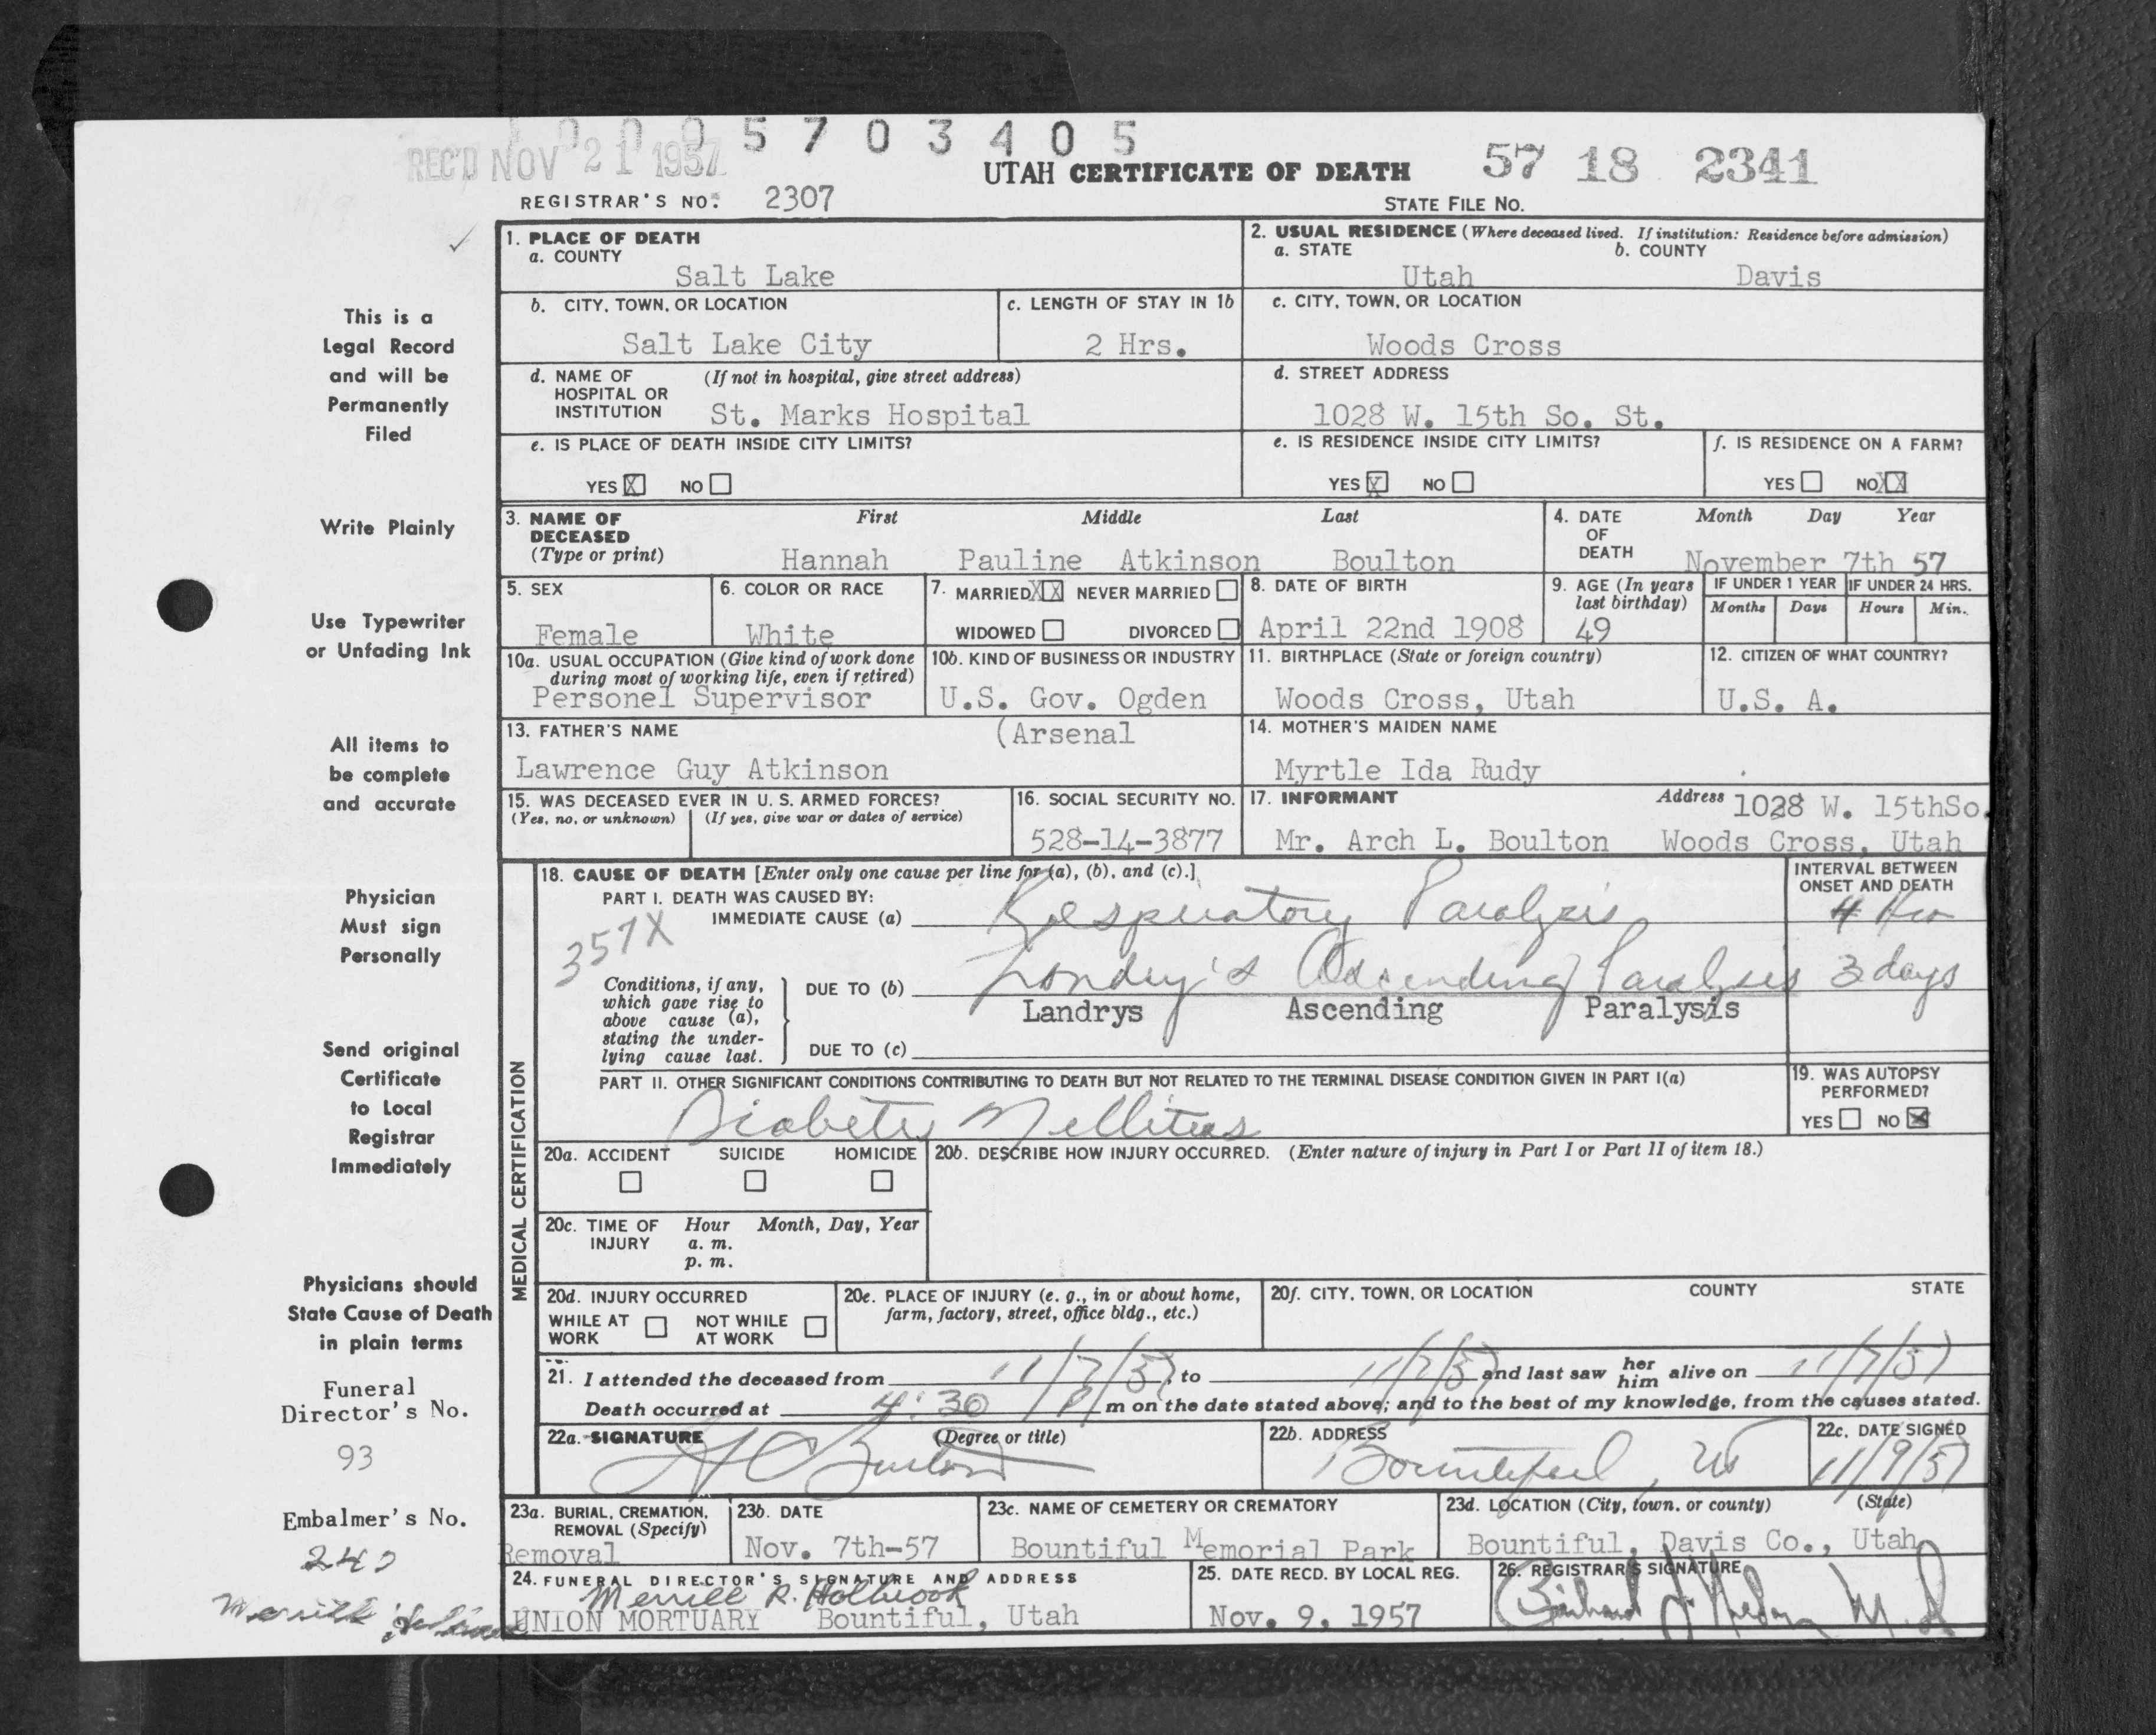 0005703405
REC'D NOV 21 1957
UTAH CERTIFICATE OF DEATH
57 18 2341
REGISTRAR'S NO. 2307
STATE FILE NO.
This is a
Legal Record
and will be
Permanently
Filed
Write Plainly
Use Typewriter
or Unfading Ink
All items to
be complete
and accurate
Physician
Must sign
Personally
Send original
Certificate
to Local
Registrar
Immediately
Physicians should
State Cause of Death
in plain terms
Funeral
Director's No.
93
Embalmer's No.
1. PLACE OF DEATH
a. COUNTY
Salt Lake
2. USUAL RESIDENCE (Where deceased lived. If institution: Residence before admission)
a. STATE b. COUNTY
Utah Davis
b. CITY, TOWN, OR LOCATION
Salt Lake City
c. LENGTH OF STAY IN 1b
2 Hrs.
c. CITY, TOWN, OR LOCATION
Woods Cross
d. NAME OF (If not in hospital, give street address)
HOSPITAL OR
INSTITUTION St. Marks Hospital
d. STREET ADDRESS
1028 W. 15th So. St.
e. IS PLACE OF DEATH INSIDE CITY LIMITS?
YES X NO
e. IS RESIDENCE INSIDE CITY LIMITS?
YES X NO
f. IS RESIDENCE ON A FARM?
YES NO XX
3. NAME OF First Middle Last
DECEASED
(Type or print) Hannah Pauline Atkinson Boulton
4. DATE Month Day Year
OF
DEATH November 7th 57
5. SEX
Female
6. COLOR OR RACE
White
7. MARRIED XX NEVER MARRIED
WIDOWED DIVORCED
8. DATE OF BIRTH
April 22nd 1908
9. AGE (In years
last birthday)
49
IF UNDER 1 YEAR IF UNDER 24 HRS.
Months Days Hours Min.
10a. USUAL OCCUPATION (Give kind of work done
during most of working life, even if retired)
Personel Supervisor
10b. KIND OF BUSINESS OR INDUSTRY
U.S. Gov. Ogden
(Arsenal
11. BIRTHPLACE (State or foreign country)
Woods Cross, Utah
12. CITIZEN OF WHAT COUNTRY?
U.S. A.
13. FATHER'S NAME
Lawrence Guy Atkinson
14. MOTHER'S MAIDEN NAME
Myrtle Ida Rudy
15. WAS DECEASED EVER IN U. S. ARMED FORCES?
(Yes, no, or unknown) (If yes, give war or dates of service)
16. SOCIAL SECURITY NO.
528-14-3877
17. INFORMANT Address 1028 W. 15thSo.
Mr. Arch L. Boulton Woods Cross, Utah
MEDICAL CERTIFICATION
18. CAUSE OF DEATH [Enter only one cause per line for (a), (b), and (c).]
INTERVAL BETWEEN
ONSET AND DEATH
PART I. DEATH WAS CAUSED BY:
IMMEDIATE CAUSE (a) Respiratory Paralysis 4 Hrs
357X
Conditions, if any,
which gave rise to
above cause (a),
stating the under-
lying cause last.
DUE TO (b) Landry's Ascending Paralysis 3 days
Landrys Ascending Paralysis
DUE TO (c)
PART II. OTHER SIGNIFICANT CONDITIONS CONTRIBUTING TO DEATH BUT NOT RELATED TO THE TERMINAL DISEASE CONDITION GIVEN IN PART I(a)
Diabetes Mellitus
19. WAS AUTOPSY
PERFORMED?
YES NO X
20a. ACCIDENT SUICIDE HOMICIDE
20b. DESCRIBE HOW INJURY OCCURRED. (Enter nature of injury in Part I or Part II of item 18.)
20c. TIME OF Hour Month, Day, Year
INJURY a. m.
p. m.
20d. INJURY OCCURRED
WHILE AT NOT WHILE
WORK AT WORK
20e. PLACE OF INJURY (e. g., in or about home,
farm, factory, street, office bldg., etc.)
20f. CITY, TOWN, OR LOCATION COUNTY STATE
21. I attended the deceased from 11/7/57, to 11/7/57 and last saw her him alive on 11/7/57
Death occurred at 4:30 P m on the date stated above; and to the best of my knowledge, from the causes stated.
22a. SIGNATURE (Degree or title)
22b. ADDRESS
Bountiful, Ut
22c. DATE SIGNED
11/9/57
23a. BURIAL, CREMATION,
REMOVAL (Specify)
Removal
23b. DATE
Nov. 7th-57
23c. NAME OF CEMETERY OR CREMATORY
Bountiful Memorial Park
23d. LOCATION (City, town, or county) (State)
Bountiful, Davis Co., Utah
24. FUNERAL DIRECTOR'S SIGNATURE AND ADDRESS
Merrill R. Holbrook
UNION MORTUARY Bountiful, Utah
25. DATE RECD. BY LOCAL REG.
Nov. 9, 1957
26. REGISTRAR'S SIGNATURE